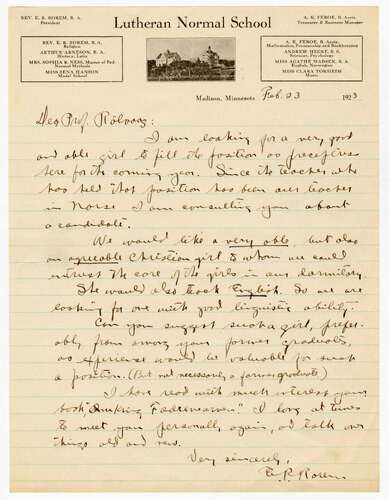 REV. E. R. ROREM, B. A.
President
Lutheran Normal School
A. K. FEROE, B. Accts.
Treasurer & Business Manager
REV. E. R. ROREM, B. A.
Religion
ARTHUR ARNTSON, B. A.
History, Latin
MRS. SOPHIA R. NESS, Master of Ped.
Normal Methods
MISS SENA HANSON
Model School
A. K. FEROE, B. Accts.
Mathematics, Penmanship and Bookkeeping
ANDREW HEGRE, B. S.
Sciences, Psychology
MISS AGATHE MADSEN, B. A.
English, Norwegian
MISS CLARA TORKHEIM
Music
Madison, Minnesota Feb. 23 1923
Dear Prof. Rölvaag:
I am looking for a very good
and able girl to fill the position as preceptress
here for the coming year. Since the teacher who
has held that position has been our teacher
in Norse I am consulting you about
a candidate.
We would like a very able, but also
an agreeable Christian girl to whom we could
entrust the care of the girls in our dormitory.
She would also teach English. So we are
looking for one with good linguistic ability.
Can you suggest such a girl, prefer-
ably from among your former graduates,
as experience would be valuable for such
a position. (But not necessarily a former graduate)
I have read with much interest your
book, "Omkring Fædrearven." I long at times
to meet you personally again, and talk over
things old and new.
Very sincerely,
E. R. Rorem